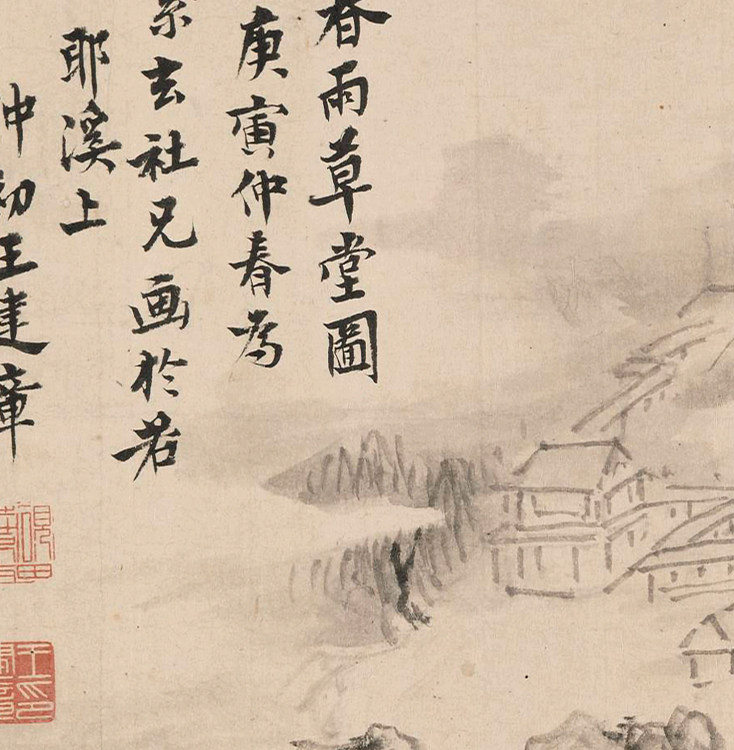 春雨草堂圖
庚寅仲春為
玄社兄画於若
耶溪上
仲初王建章